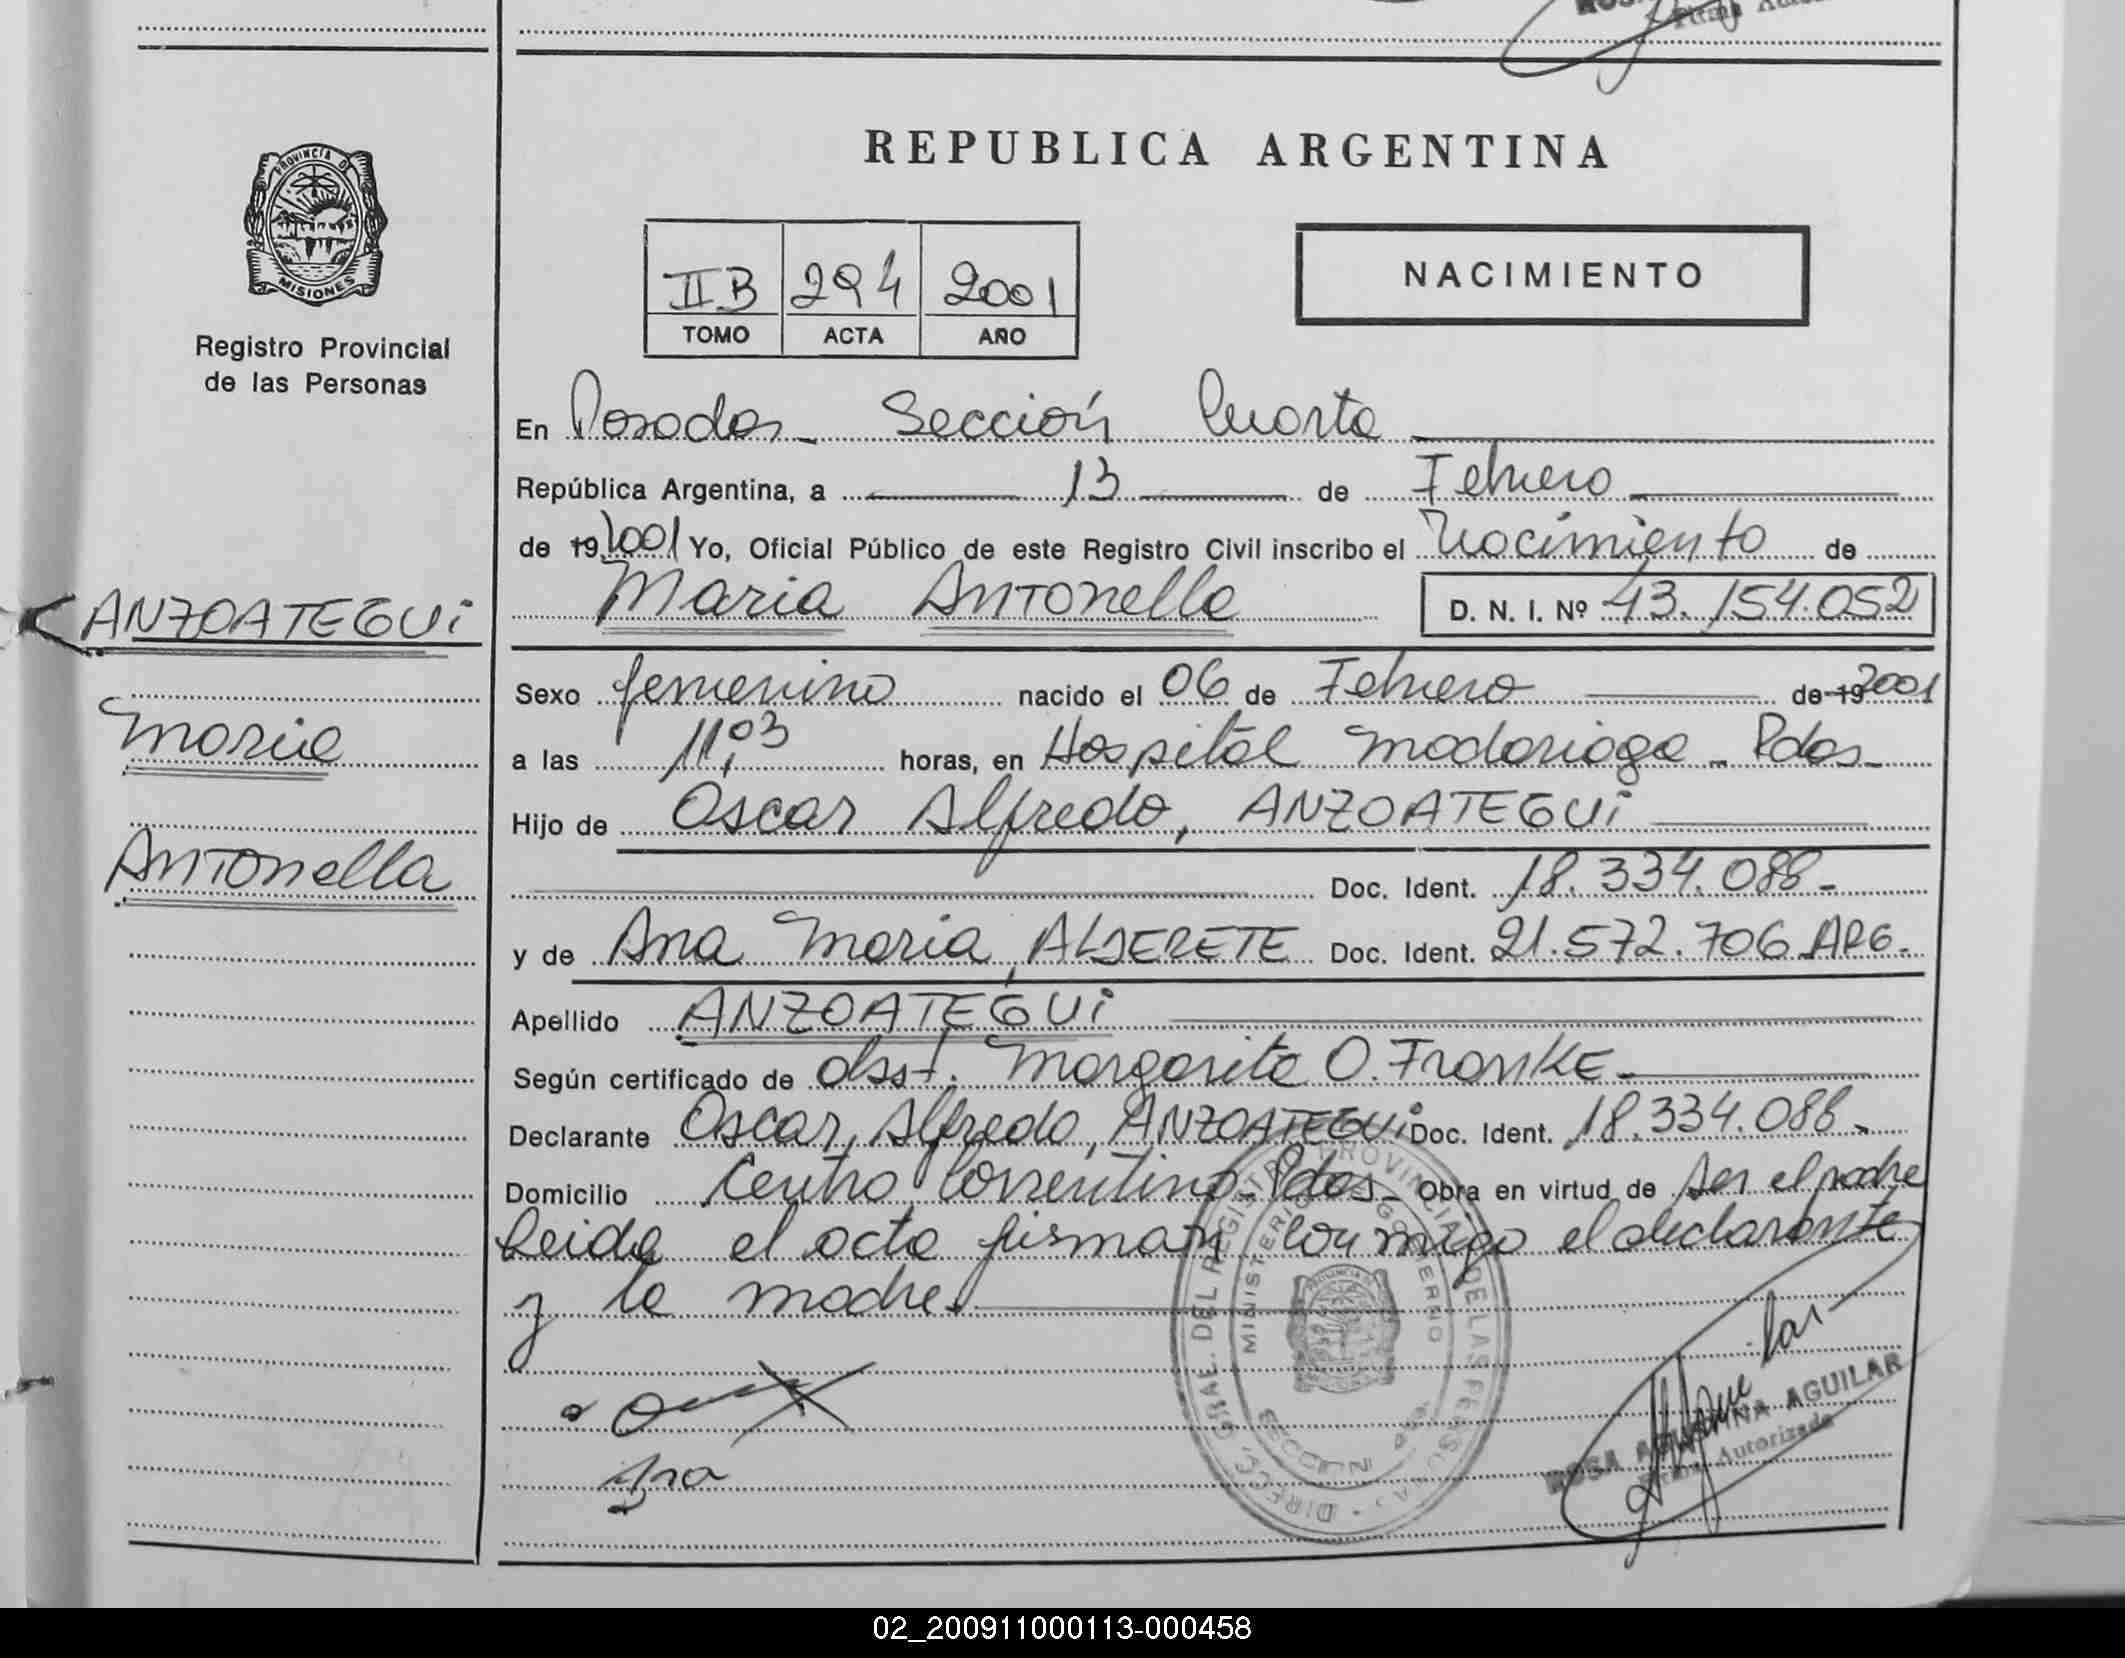 REPUBLICA ARGENTINA
PROVINCIA DE
MISIONES
Registro Provincial
de las Personas
NACIMIENTO
II B 294 2001
TOMO ACTA AÑO
En Posadas - Sección Cuarta
República Argentina, a 13 de Febrero
de 19 2001 Yo, Oficial Público de este Registro Civil inscribo el Nacimiento de
Maria Antonella D. N. I. Nº 43.154.052
ANZOATEGUi
Maria
Antonella
Sexo femenino nacido el 06 de Febrero de 19 2001
a las 11,03 horas, en Hospital Madariaga - Pdas -
Hijo de Oscar Alfredo, ANZOATEGUi
Doc. Ident. 18.334.088 -
y de Ana Maria, ALDERETE Doc. Ident. 21.572.706 ARG.
Apellido ANZOATEGUi
Según certificado de obst. Margarita O. FranKE -
Declarante Oscar Alfredo, ANZOATEGUi Doc. Ident. 18.334.088 -
Domicilio Centro Correntino - Pdas - Obra en virtud de ser el padre
Leida el acta firman conmigo el declarante
y la madre.
DIRECC. GRAL. DEL REGISTRO PROVINCIAL DE LAS PERSONAS
MINISTERIO DE GOBIERNO
SECCION 4ta.
ROSA AGUSTINA AGUILAR
Firma Autorizada
02_200911000113-000458